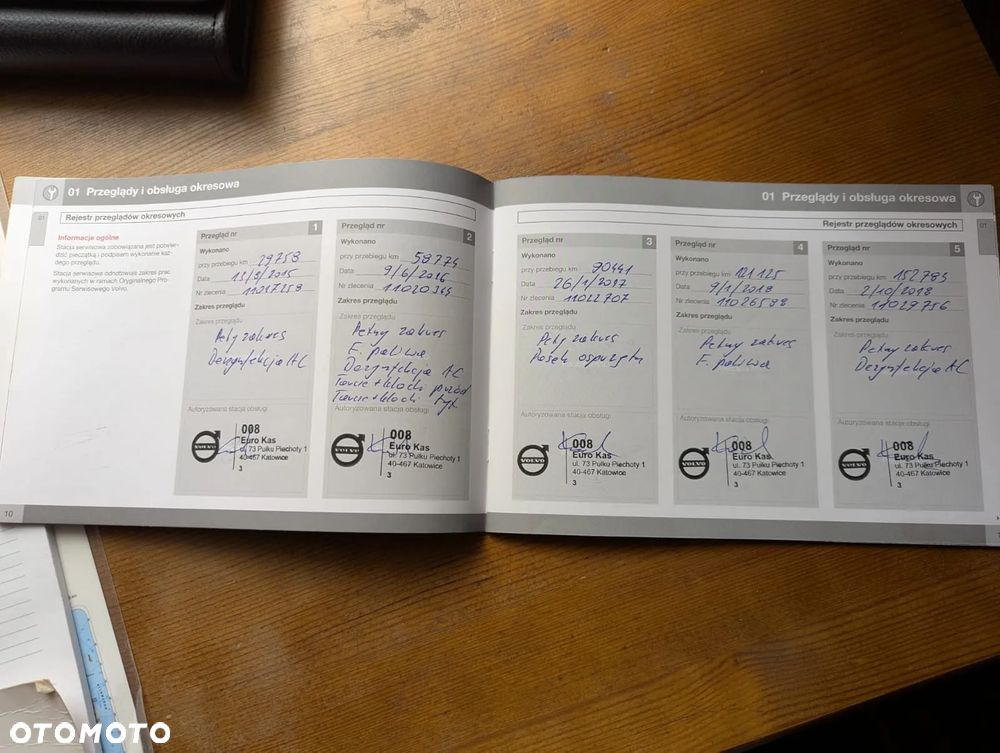 01 Przeglądy i obsługa okresowa
01
Rejestr przeglądów okresowych
Informacje ogólne
Stacja serwisowa zobowiązana jest potwier-
dzić pieczątką i podpisem wykonanie każ-
dego przeglądu.
Stacja serwisowa odnotowuje zakres prac
wykonanych w ramach Oryginalnego Pro-
gramu Serwisowego Volvo.
Przegląd nr 1
Wykonano
przy przebiegu km 29758
Data
Nr zlecenia 11017258
Zakres przeglądu
Zakres przeglądu
zakres
Dezynfekcja AC
Autoryzowana stacja obsługi
VOLVO
008
Euro Kas
ul. 73 Pułku Piechoty 1
40-467 Katowice
3
Przegląd nr 2
Wykonano
przy przebiegu km 58774
Data 9/6/2016
Nr zlecenia
Zakres przeglądu
Zakres przeglądu
Pełny zakres
F. paliwa
Dezynfekcja AC
Tarcze + klocki przód
Tarcze + klocki tył
Autoryzowana stacja obsługi
VOLVO
008
Euro Kas
ul. 73 Pułku Piechoty 1
40-467 Katowice
3
10
01 Przeglądy i obsługa okresowa
Rejestr przeglądów okresowych
01
Przegląd nr 3
Wykonano
przy przebiegu km 90441
Data 26/1/2017
Nr zlecenia 11022707
Zakres przeglądu
Zakres przeglądu
zakres
Pasek osprzętu
Autoryzowana stacja obsługi
VOLVO
008
Euro Kas
ul. 73 Pułku Piechoty 1
40-467 Katowice
3
Przegląd nr 4
Wykonano
przy przebiegu km 121125
Data 9/1/2018
Nr zlecenia 11026588
Zakres przeglądu
Zakres przeglądu
Pełny zakres
F. paliwa
Autoryzowana stacja obsługi
VOLVO
008
Euro Kas
ul. 73 Pułku Piechoty 1
40-467 Katowice
3
Przegląd nr 5
Wykonano
przy przebiegu km 152793
Data 2/10/2018
Nr zlecenia 11029756
Zakres przeglądu
Zakres przeglądu
Pełny zakres
Dezynfekcja AC
Autoryzowana stacja obsługi
VOLVO
008
Euro Kas
ul. 73 Pułku Piechoty 1
40-467 Katowice
3
OTOMOTO